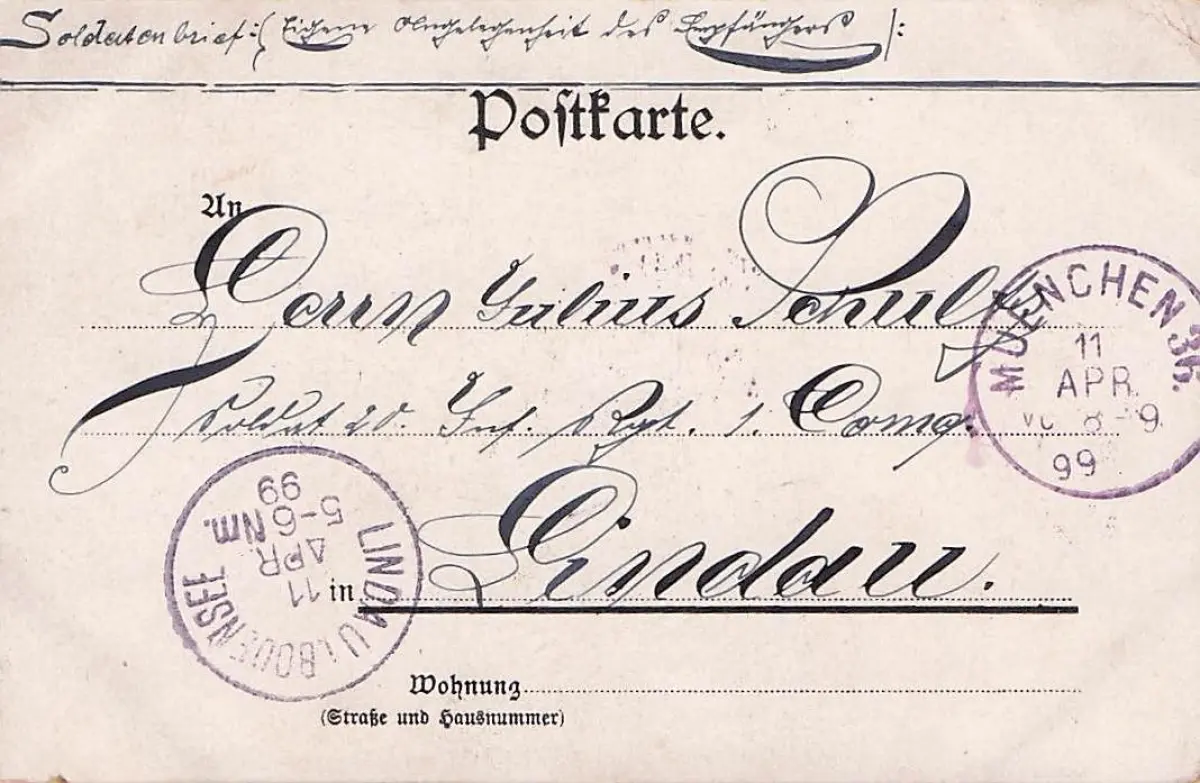 Soldatenbrief :(Eigene Angelegenheit des Empfängers):
Postkarte.
An
Herrn Julius Schulz
Soldat 20. Inf. Rgt. 1. Comp.
in Lindau.
Wohnung
(Straße und Hausnummer)
MUENCHEN 36.
11
APR.
8-9
99
LINDAU I.BODENSEE
11
APR
5-6 Nm.
99